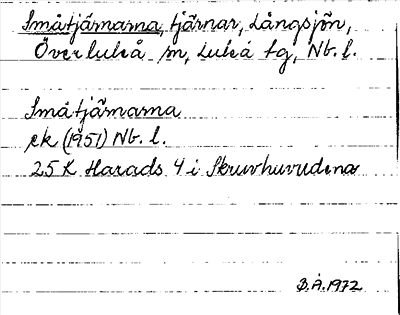 Småtjärnarna, tjärnar, Långsjön,
Överluleå sn, Luleå tg, Nb. l.
Småtjärnarna
ek (1951) Nb. l.
25 K Harads 4 i Skruvhuvudena
B.Å. 1972